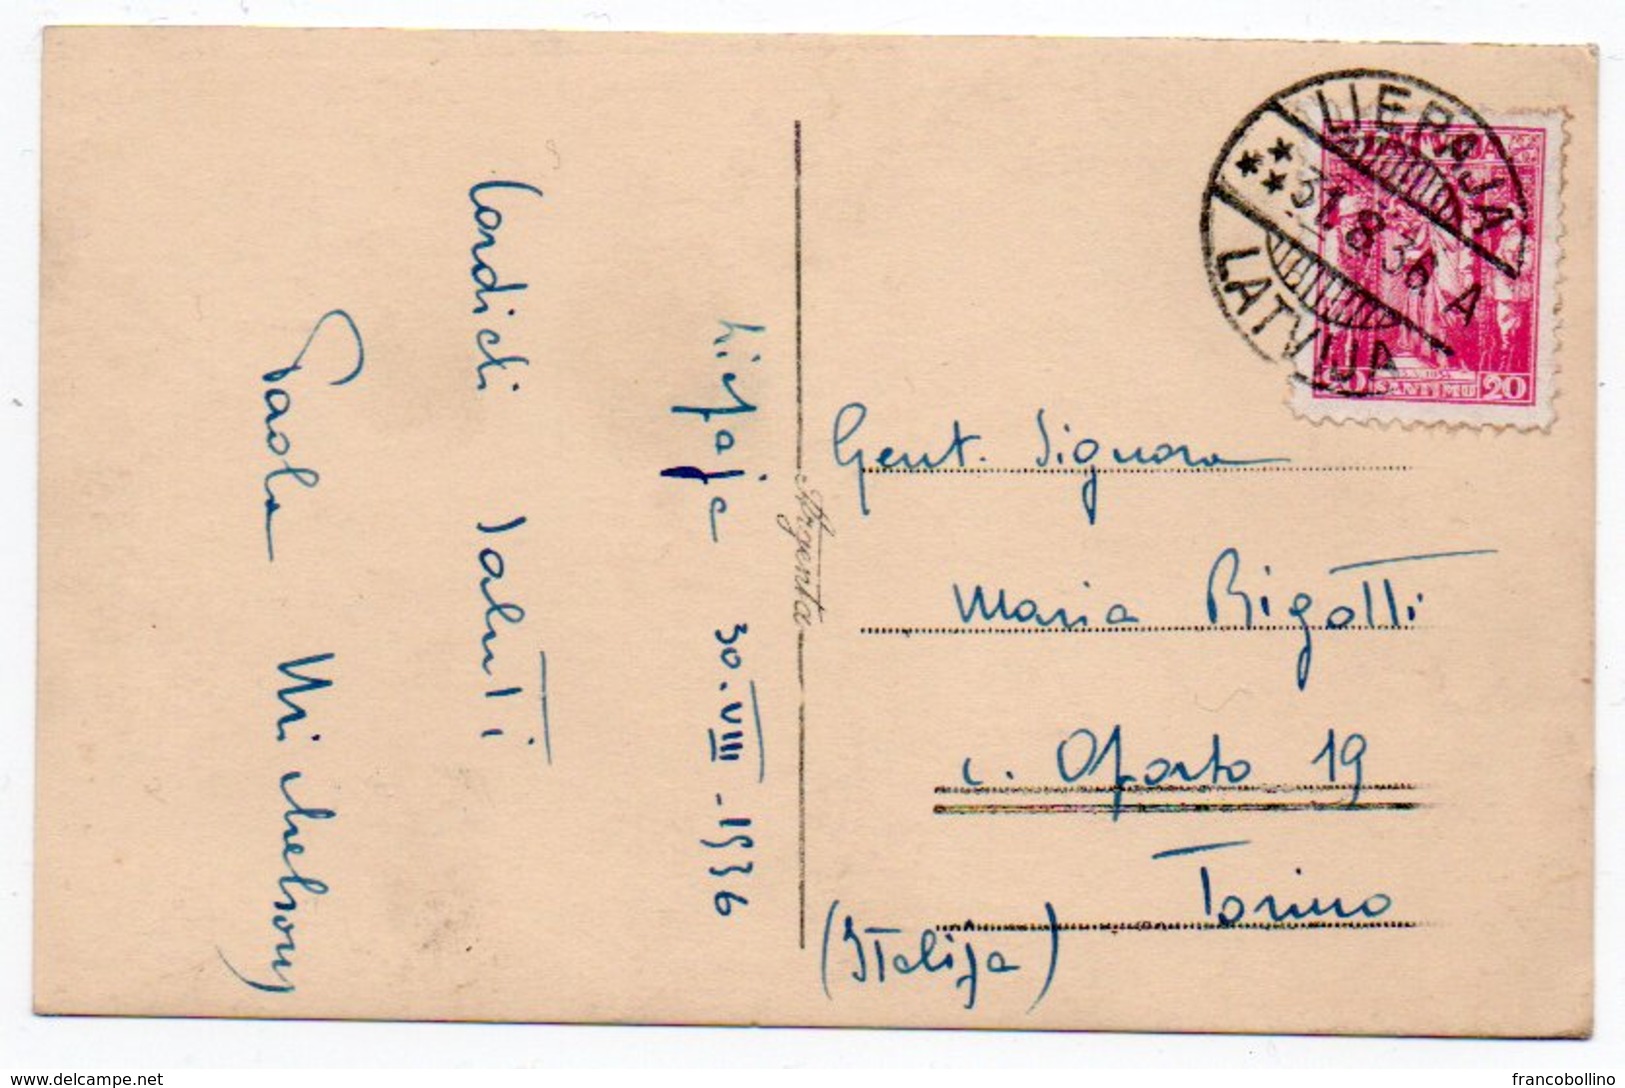 Liepaja 30.VIII-1936
Cordiali saluti
Paola Michelsony
Argenta
LIEPAJA
31.8.36. A
LATVIJA
20 SANTIMU 20
Gent. Signora
Maria Rigotti
c. Oporto 19
Torino
(Italija)
www.delcampe.net
francobollino